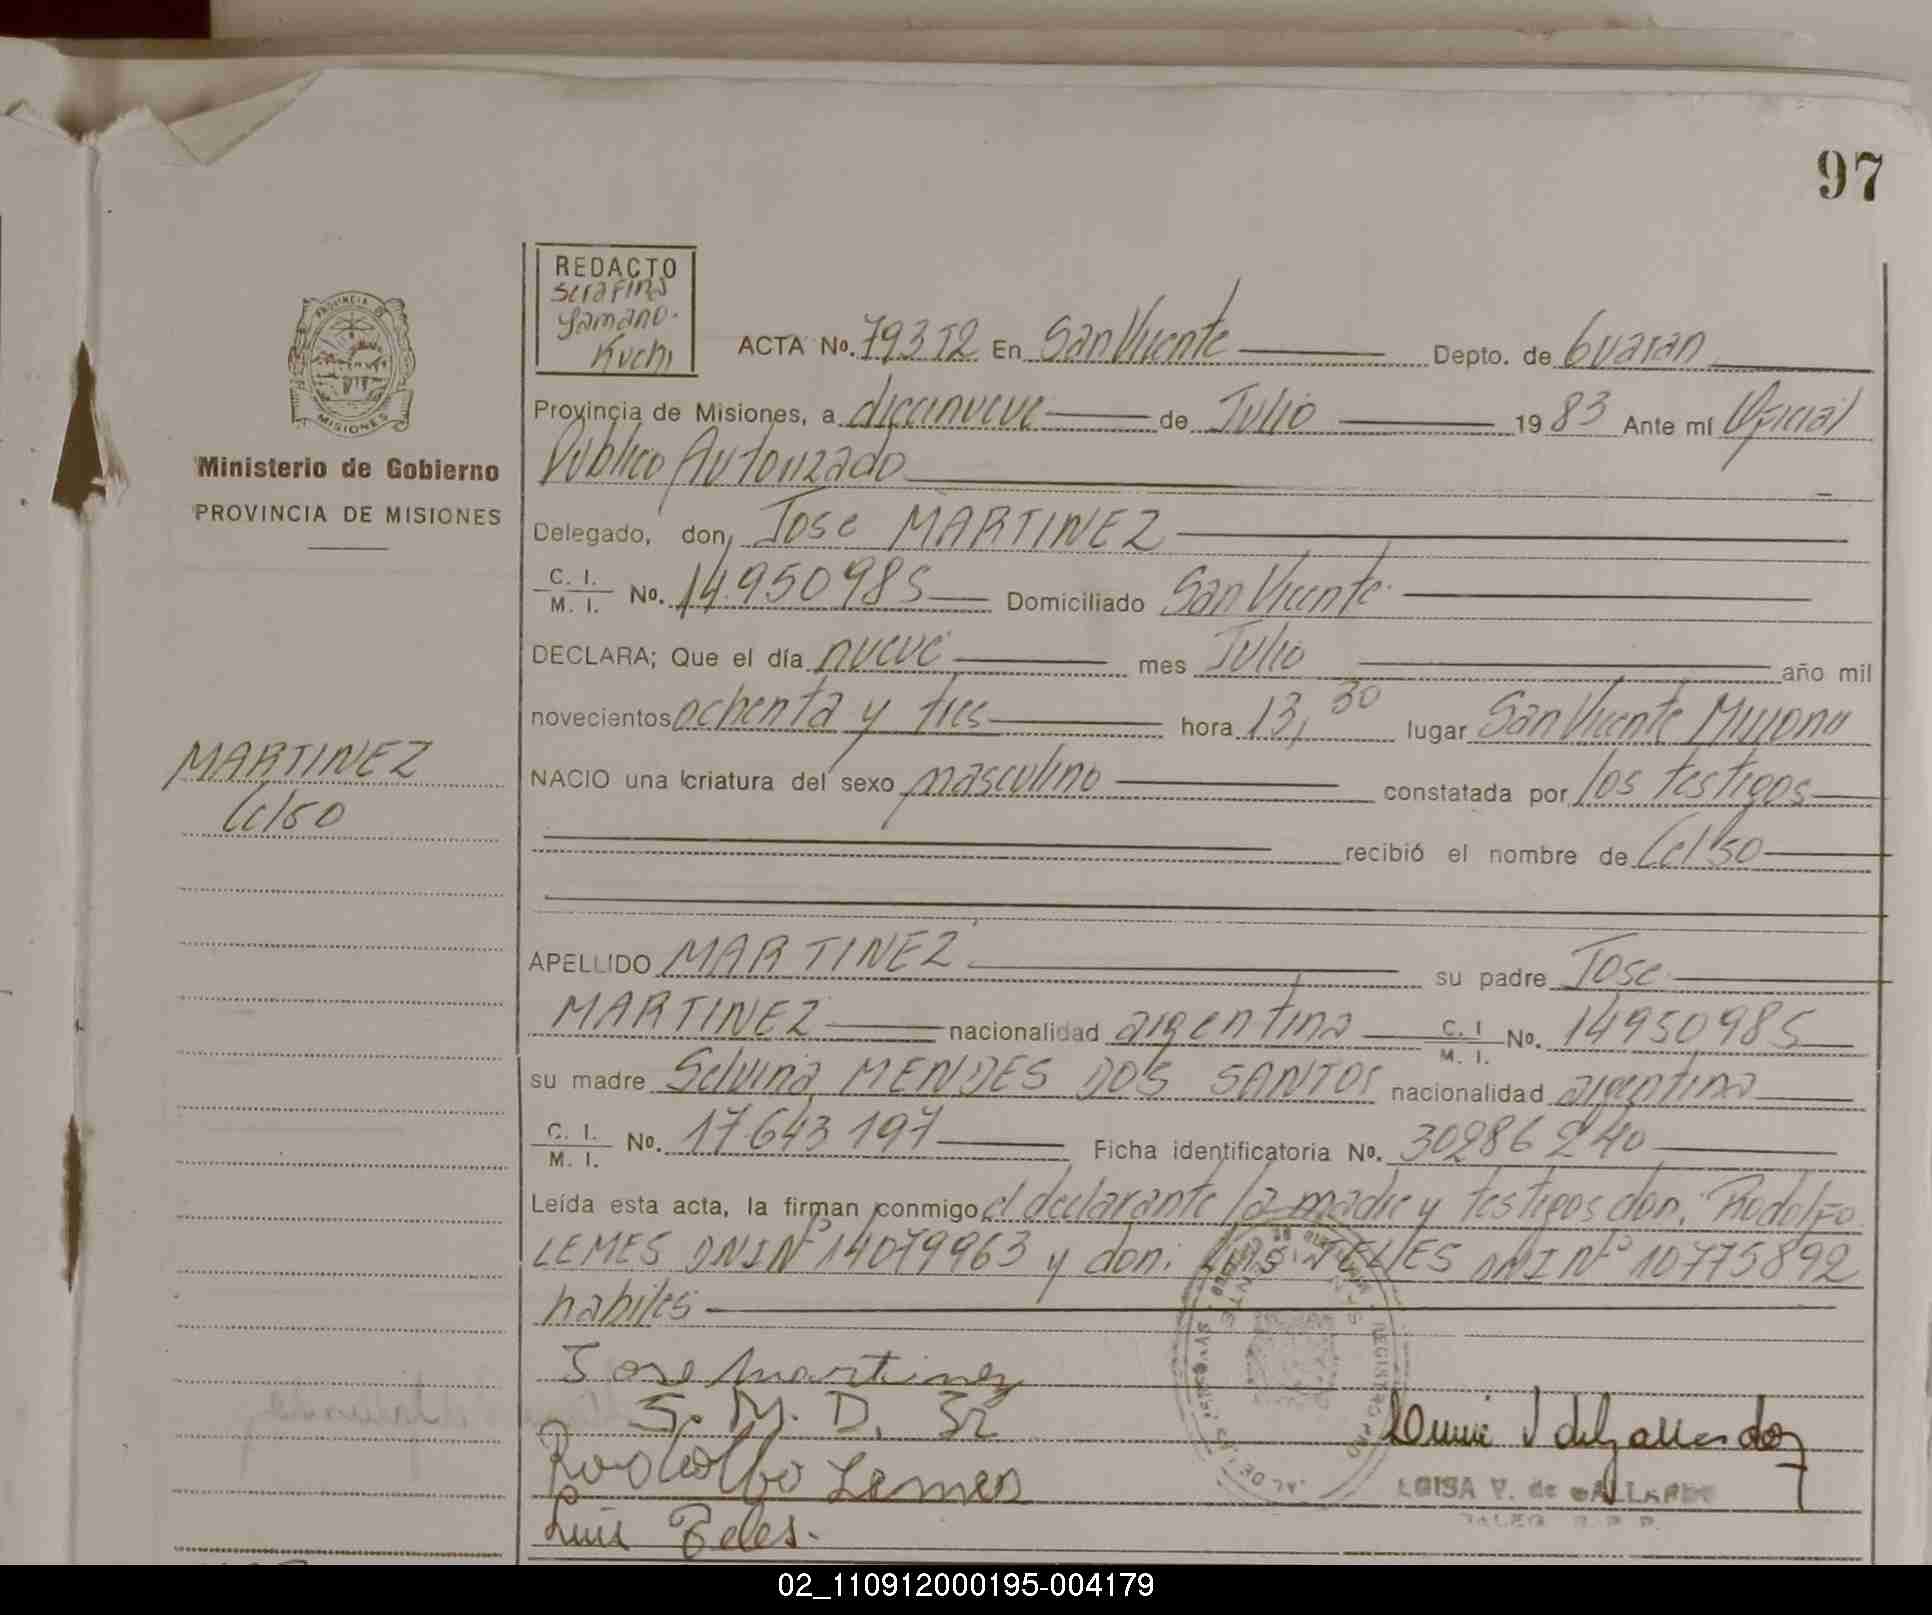 97
REDACTO
Serafina
Yamano-
Kuchi
ACTA No. 79352 En San Vicente Depto. de Guaran
Provincia de Misiones, a diecinueve de Julio 1983 Ante mí Oficial
Público Autorizado
Delegado, don, Jose MARTINEZ
C. I.
M. I. No. 14.950985 Domiciliado San Vicente.
DECLARA; Que el día nueve mes Julio año mil
novecientos ochenta y tres hora 13,30 lugar San Vicente Misiones
NACIO una criatura del sexo masculino constatada por los testigos
recibió el nombre de Celso
APELLIDO MARTINEZ su padre Jose
MARTINEZ nacionalidad argentina C. I. M. I. No. 14950985
su madre Selvina MENDES DOS SANTOS nacionalidad argentina
C. I.
M. I. No. 17.643.197 Ficha identificatoria No. 30286240
Leída esta acta, la firman conmigo, el declarante la madre y testigos don. Rodolfo
LEMES DNI Nº 14079963 y don. Luis TELES DNI Nº 10775892
habiles
Jose Martinez
S. M. D. S
Rodolfo Lemes
Luis Teles.
LUISA V. de GALLARDO
PROVINCIA DE
MISIONES
Ministerio de Gobierno
PROVINCIA DE MISIONES
MARTINEZ
Celso
02_110912000195-004179